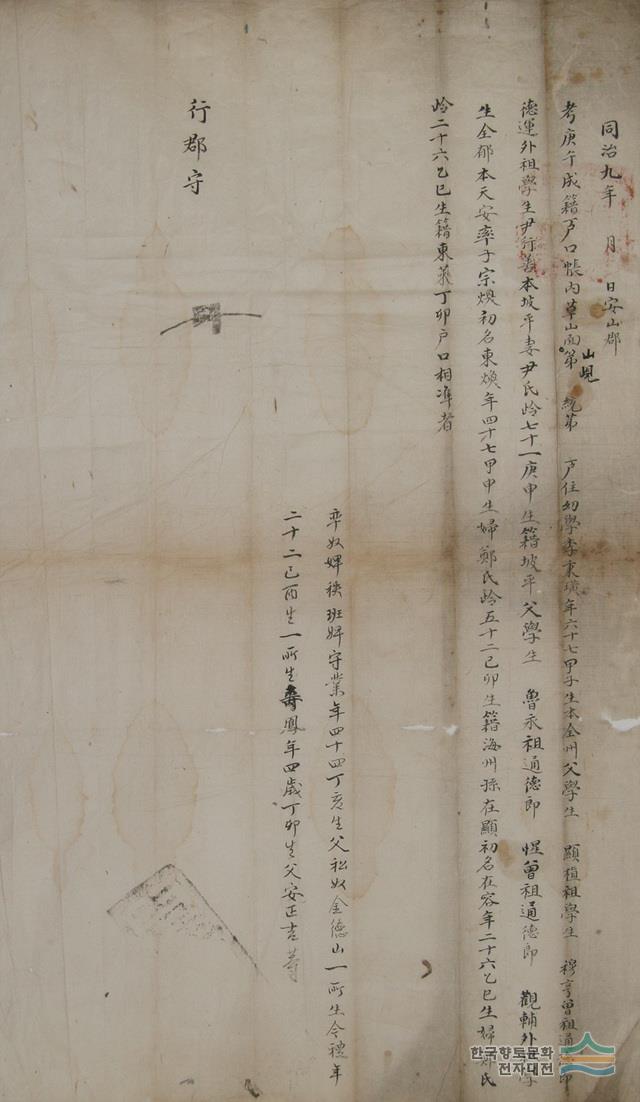 同治九年 月 日安山郡
考庚午成籍戶口帳內草山面第 統第 戶住幼學李東璜年六十七甲子生本全州父學生 顯植祖學生 穆亨曾祖通德郎
山峴
德運外祖學生尹行善本坡平妻尹氏齡七十一庚申生籍坡平父學生 魯永祖通德郎 惺曾祖通德郎 觀輔外
生全郁本天安率子宗煥初名東煥年四十七甲申生婦鄭氏齡五十二己卯生籍海州孫在顯初名在容年二十六乙巳生婦鄭氏
齡二十六乙巳生籍東萊丁卯戶口相準者
率奴婢秩班婢守業年四十四丁亥生父私奴金德山一所生令禮年
二十二己酉生一所生壽鳳年四歲丁卯生父安正吉等
行郡守
한국향토문화
전자대전